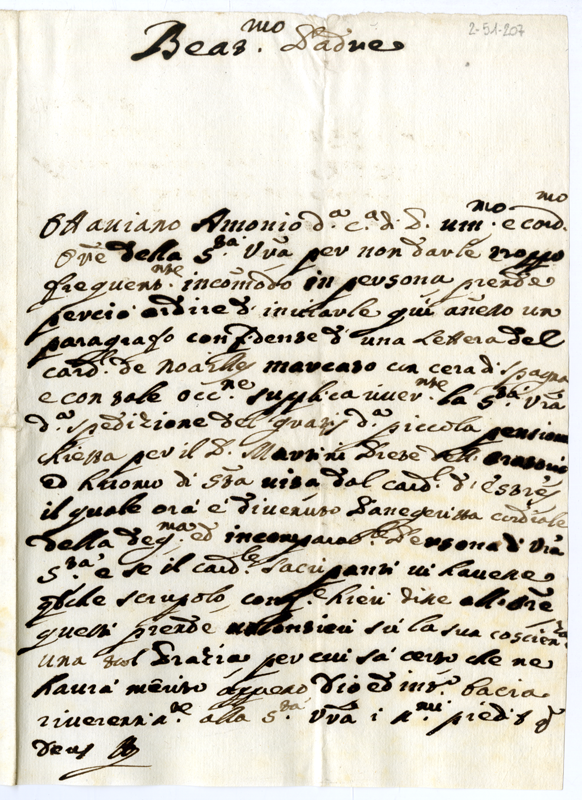 2-51-207
Beat.mo Padre
Ottaviano Antonio d.a C.a d. D. um.mo e cord.mo
Ore della S.tà Vra per non darle troppo
frequent.nte incomodo in persona prende
percio ardire d' inviarle qui añesso un
paragrafo confidente d' una lettera del
card.le de Noailles marcato con cera di Spagna
e con tale occ.ne supplica river.nte la S.tà Vra
d.a spedizione del grat.s d.a piccola pensione
chiesta per il P. Martini Prete dell' Oratorio
ed huomo di S.ta vita dal card. d' Estrés
il quale ora è divenuto Panegirista cordiale
della deg.ma ed incomparab.le Persona di Vra
S.tà e sé il card.le Sacripanti vi havesse
qlche scrupolo com.e hieri disse all' Ore
questi prende volontieri sù la sua coscien.za
una tal Grazia, per cui sà certo che ne
haurà mèrito appresso Dio ed int.o bacia
riverentem.te alla S.tà Vra i s.mi piedi q
Deus